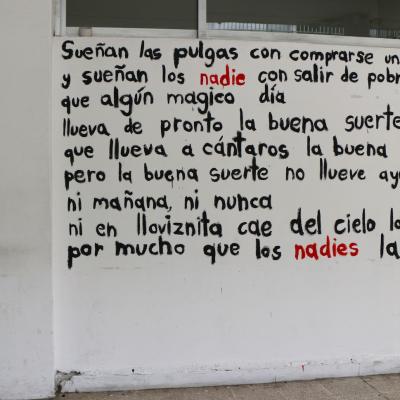 Sueñan las pulgas con comprarse un
y sueñan los nadie con salir de pobr
que algún magico día
llueva de pronto la buena suerte
que llueva a cántaros la buena
pero la buena suerte no llueve ay
ni mañana, ni nunca
ni en lloviznita cae del cielo la
por mucho que los nadies la